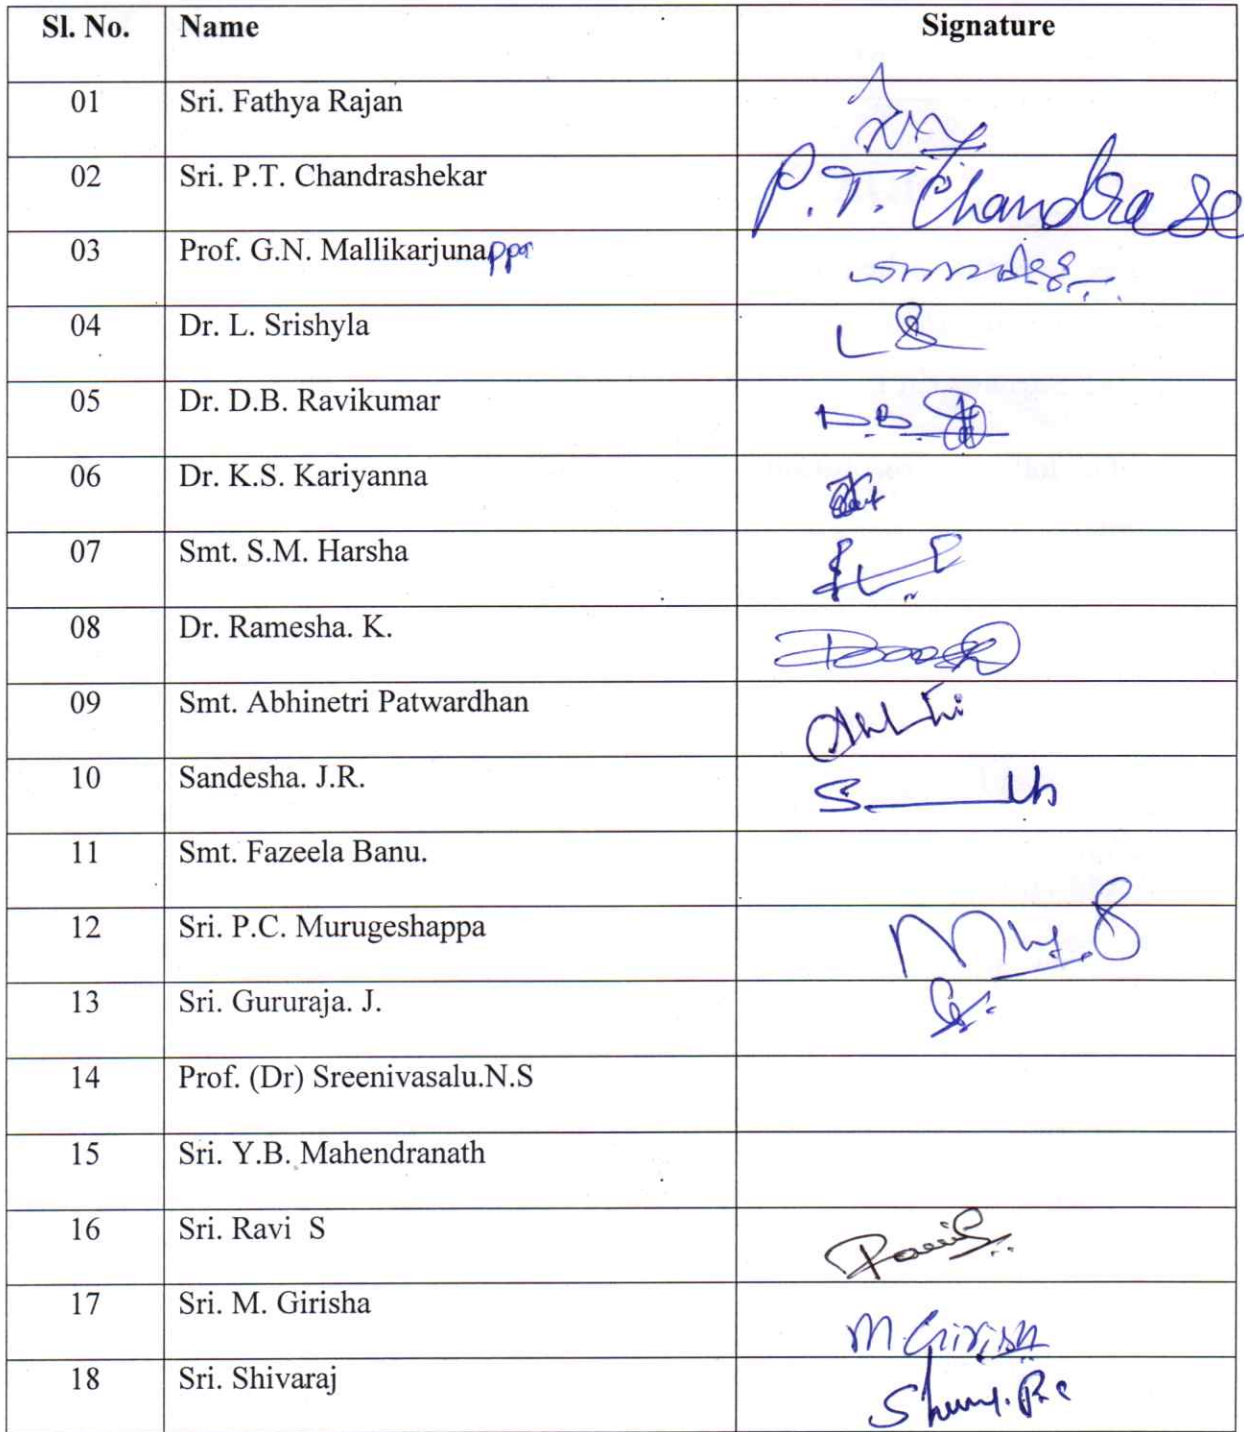 Sl. No. Name Signature
01 Sri. Fathya Rajan
02 Sri. P.T. Chandrashekar P.T. Chandra Se
03 Prof. G.N. Mallikarjunappa
04 Dr. L. Srishyla L S
05 Dr. D.B. Ravikumar D.B.
06 Dr. K.S. Kariyanna
07 Smt. S.M. Harsha
08 Dr. Ramesha. K.
09 Smt. Abhinetri Patwardhan
10 Sandesha. J.R.
11 Smt. Fazeela Banu.
12 Sri. P.C. Murugeshappa
13 Sri. Gururaja. J.
14 Prof. (Dr) Sreenivasalu.N.S
15 Sri. Y.B. Mahendranath
16 Sri. Ravi S
17 Sri. M. Girisha M Girish
18 Sri. Shivaraj